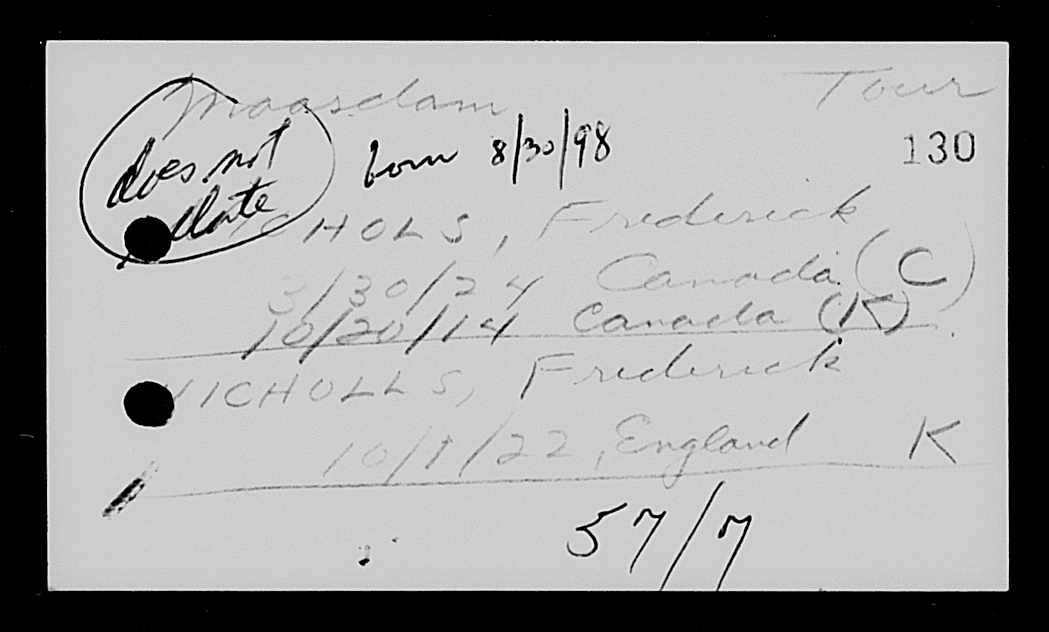 Maasdam Tour
does not
date
born 8/30/98
130
CHOLS, Frederick
3/30/24 Canada (C)
10/20/14 Canada (K)
NICHOLLS, Frederick
10/1/22, England K
57/7